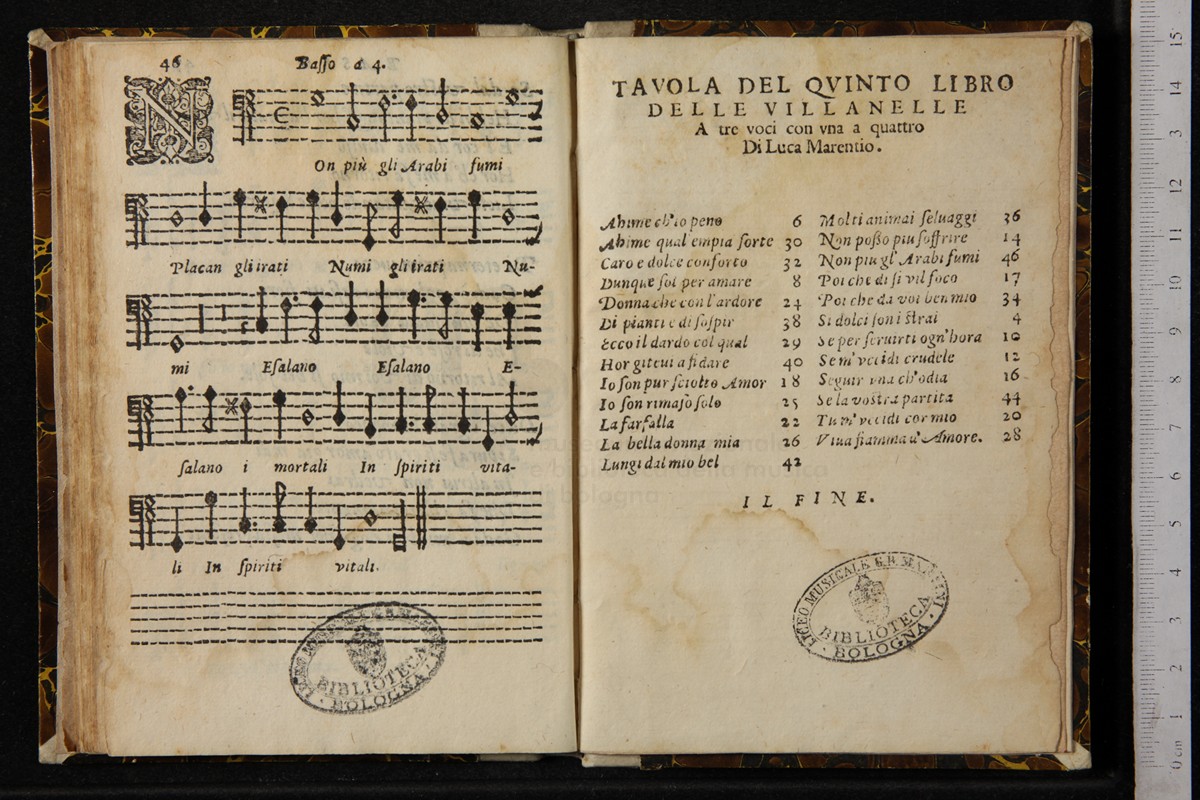 46
Baſſo a 4.
N
On più gli Arabi fumi
Placan gli irati Numi gli irati Nu-
mi Eſalano Eſalano E-
ſalano i mortali In ſpiriti vita-
li In ſpiriti vitali.
BIBLIOTECA
BOLOGNA
TAVOLA DEL QVINTO LIBRO
DELLE VILLANELLE
A tre voci con vna a quattro
Di Luca Marentio.
Ahime ch'io peno 6
Ahime qual'empia ſorte 30
Caro e dolce conforto 32
Dunque ſol per amare 8
Donna che con l'ardore 24
Di pianti e di ſoſpir 38
Ecco il dardo col qual 29
Hor giteui a fidare 40
Io ſon pur ſciolto Amor 18
Io ſon rimaſo ſolo 25
La farfalla 22
La bella donna mia 26
Lungi dal mio bel 42
Molti animai ſeluaggi 36
Non poſſo piu ſoffrire 14
Non piu gl'Arabi fumi 46
Poi che di ſi vil foco 17
Poi che da voi ben mio 34
Si dolci ſon i ſtrai 4
Se per ſeruirti ogn'hora 10
Se m'vccidi crudele 12
Seguir vna ch'odia 16
Se la voſtra partita 44
Tu m'vccidi cor mio 20
Viua fiamma d'Amore. 28
IL FINE.
museo internazionale
e biblioteca della musica
di bologna
LICEO MUSICALE G.B. MARTINI
BIBLIOTECA
BOLOGNA
0 cm 1 2 3 4 5 6 7 8 9 10 11 12 13 14 15